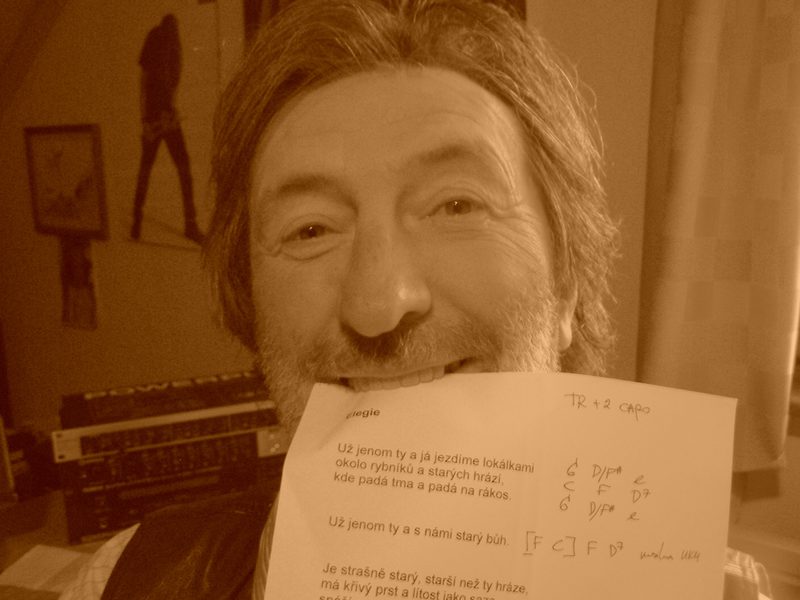 Elegie
TR +2 CAPO
Už jenom ty a já jezdíme lokálkami
okolo rybníků a starých hrází,
kde padá tma a padá na rákos.
G D/F# e
C F D7
G D/F# e
Už jenom ty a s námi starý bůh.
[F C] F D7
Je strašně starý, starší než ty hráze,
má křivý prst a lítost jako saze